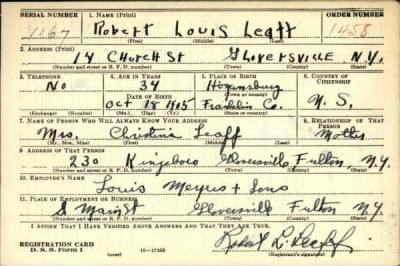 SERIAL NUMBER 1. NAME (Print) ORDER NUMBER
1167 Robert Louis Leaff 1458
(First) (Middle) (Last)
2. ADDRESS (Print)
14 Church St Gloversville N.Y.
(Number and street or R. F. D. number) (Town) (County) (State)
3. TELEPHONE 4. AGE IN YEARS 5. PLACE OF BIRTH 6. COUNTRY OF CITIZENSHIP
No 34 Hogansburg
DATE OF BIRTH (Town or county)
Oct 18 1905 Franklin Co. U.S.
(Exchange) (Number) (Mo.) (Day) (Yr.) (State or country)
7. NAME OF PERSON WHO WILL ALWAYS KNOW YOUR ADDRESS 8. RELATIONSHIP OF THAT PERSON
Mrs. Christina Leaff Mother
(Mr., Mrs., Miss) (First) (Middle) (Last)
9. ADDRESS OF THAT PERSON
230 Kingsboro Gloversville Fulton, N.Y.
(Number and street or R. F. D. number) (Town) (County) (State)
10. EMPLOYER'S NAME
Louis Meyers + Sons
11. PLACE OF EMPLOYMENT OR BUSINESS
S Main St Gloversville Fulton N.Y.
(Number and street or R. F. D. number) (Town) (County) (State)
I AFFIRM THAT I HAVE VERIFIED ABOVE ANSWERS AND THAT THEY ARE TRUE.
REGISTRATION CARD
D. S. S. Form 1 (over) 16—17105 Robert L. Leaff
(Registrant's signature)